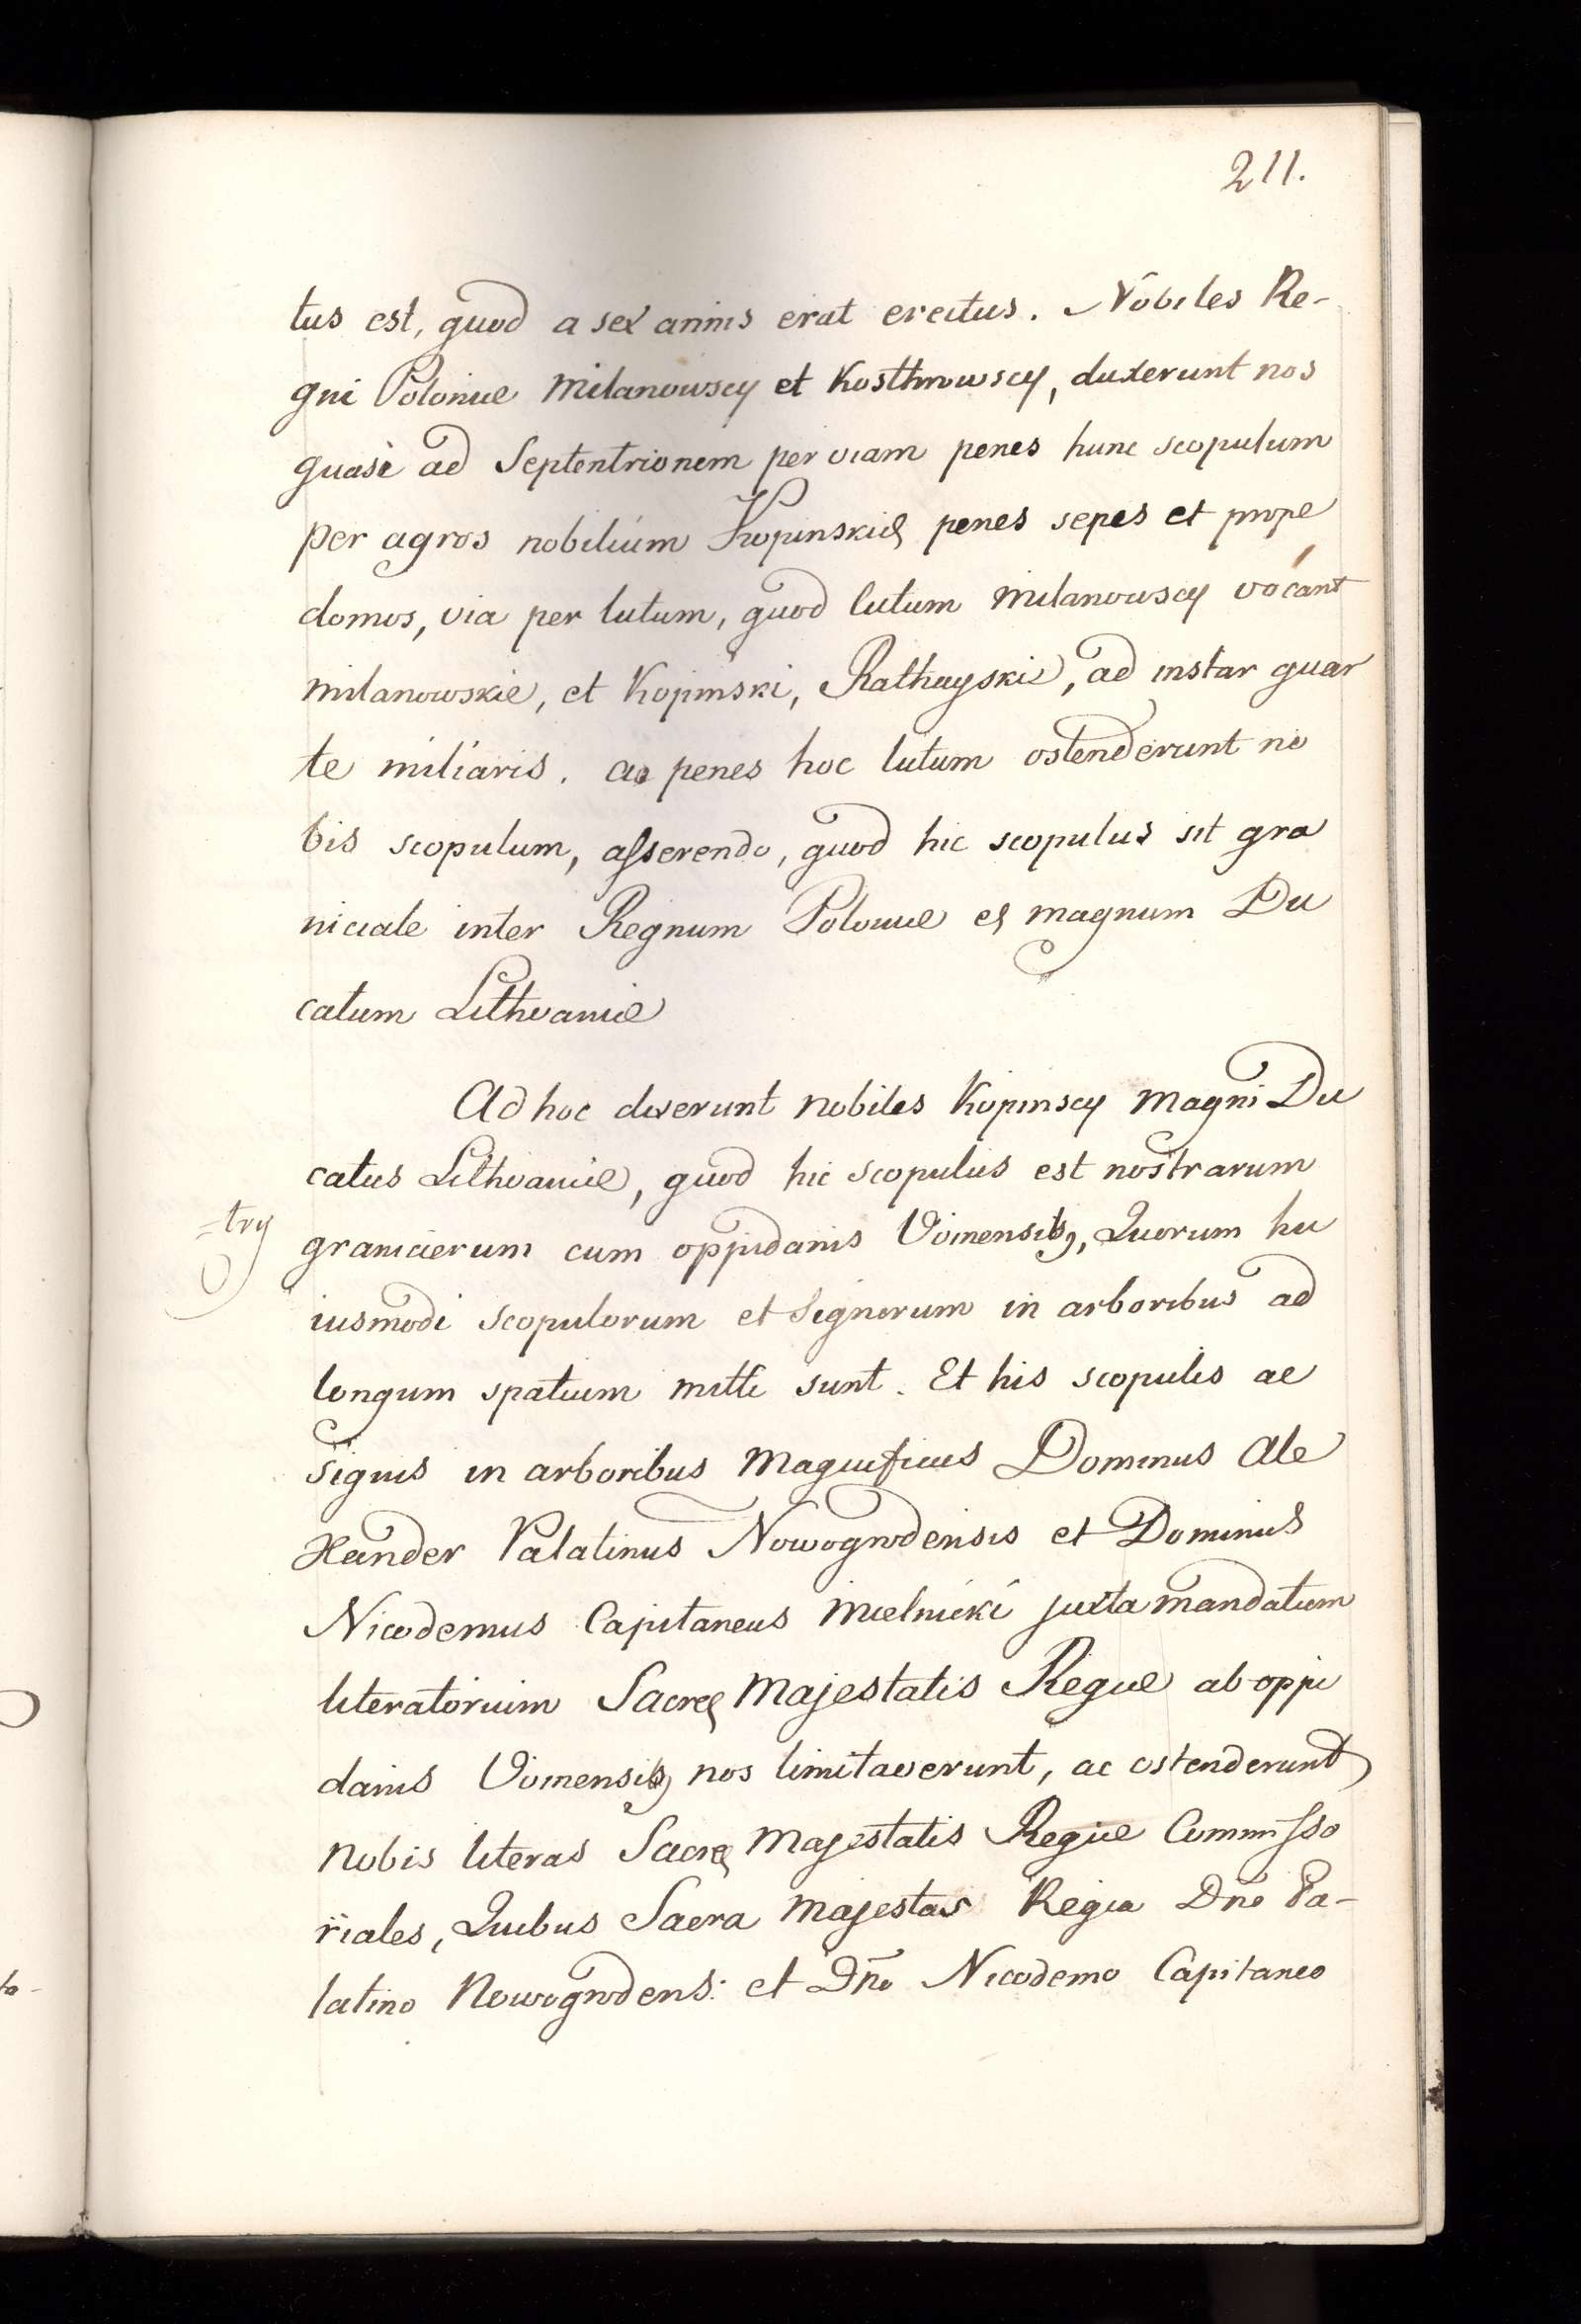 211.
tus est, quod a sex annis erat erectus. Nobiles Re-
gni Polonie Milanowscy et Kosthrowscy, duxerunt nos
quasi ad Septentrionem per viam penes hunc scopulum
per agros nobilium Kopinskie penes sepes et prope
domos, via per lutum, quod lutum Milanowscy vocant
milanowskie, et Kopinski, Rathayskie, ad instar quar
te miliaris. ac penes hoc lutum ostenderunt no
bis scopulum, asserendo, quod hic scopulus sit gra
niciale inter Regnum Polonie et magnum Du
catum Lithvanie
Ad hoc dixerunt nobiles Kopinscy Magni Du
catus Lithvanie, quod hic scopulus est nostrarum
=try
granicierum cum oppidanis Voinensibꝫ, Quorum hu
iusmodi scopulorum et Signorum in arboribus ad
longum spatium mitti sunt. Et his scopulis ac
signis in arboribus Magnificus Dominus Ale
xander Palatinus Nowogrodensis et Dominus
Nicodemus Capitaneus Mielnicki juxta mandatum
literatorium Sacrę Majestatis Regie ab oppi
danis Voinensibꝫ nos limitaverunt, ac ostenderunt
Nobis literas Sacrę Majestatis Regie Commisso
riales, Quibus Sacra Majestas Regia Dno Pa-
latino Nowogrodens: et Dno Nicodemo Capitaneo